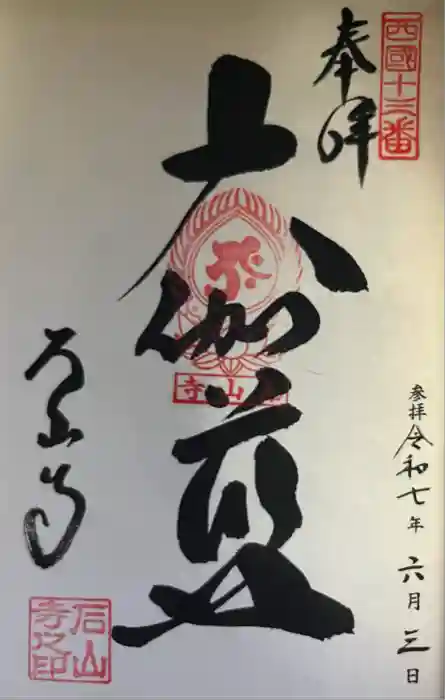 西國十三番
奉拝
参拝 令和七年 六月三日
大伽藍
石山寺
石山寺
石山寺之印